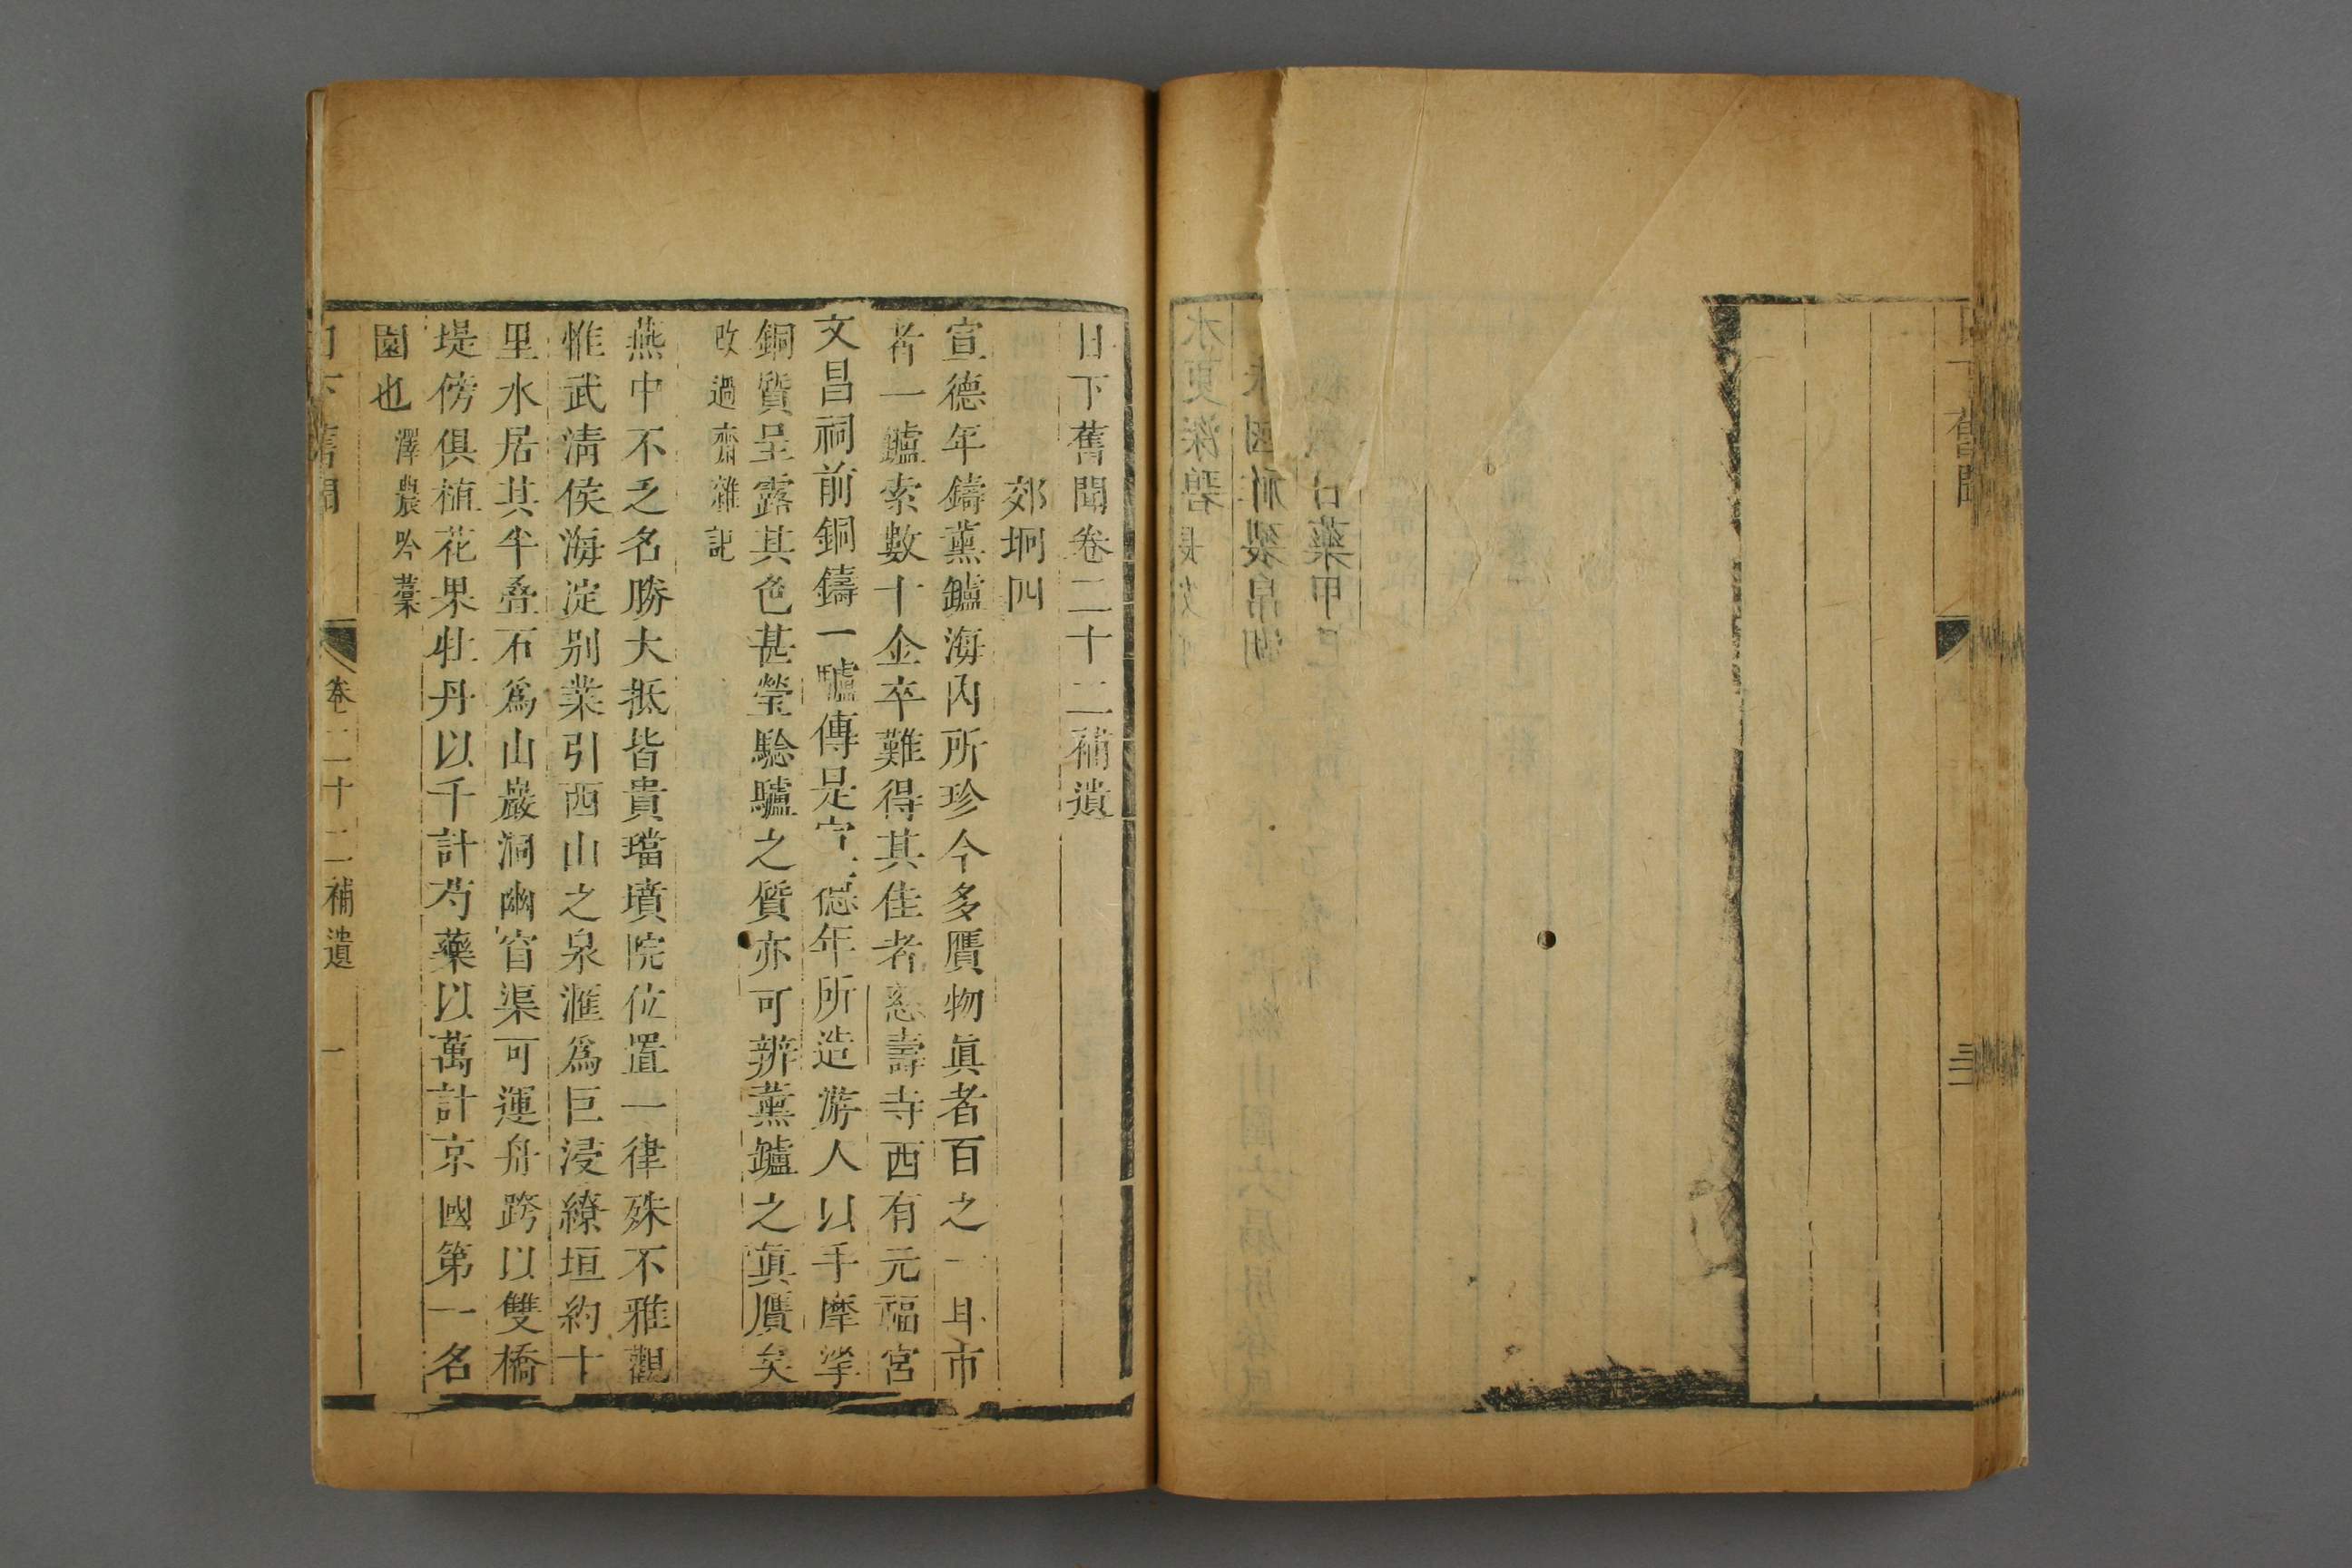 日下舊聞
三
日下舊聞卷二十二補遺
郊坰四
宣德年鑄薰鑪海內所珍今多贋物眞者百之一耳市
者一鑪索數十金卒難得其佳者慈壽寺西有元福宮
文昌祠前銅鑄一驢傳是宣德年所造游人以手摩挲
銅質呈露其色甚瑩騐驢之質亦可辨薰鑪之眞贋矣
改過齋雜記
燕中不乏名勝大抵皆貴璫墳院位置一律殊不雅觀
惟武清侯海淀别業引西山之泉滙爲巨浸繚垣約十
里水居其半叠石爲山巖洞幽窅渠可運舟跨以雙橋
堤傍俱植花果牡丹以千計芍藥以萬計京國第一名
園也 澤農吟藳
日下舊聞 卷二十二補遺 一